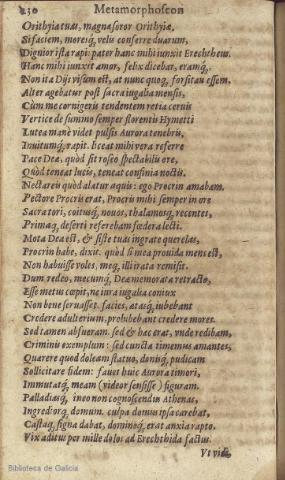 230 Metamorphoseon
Orithyia tuas, magna soror Orithyiæ,
Si faciem, moresq́; velis conferre duarum,
Dignior ista rapi: pater hanc mihi iunxit Erechtheus.
Hanc mihi iunxit amor, felix dicebar, eramq́;.
Non ita Dijs visum est, at nunc quoq́; forsitan essem.
Alter agebatur post sacra iugalia mensis,
Cum me cornigeris tendentem retia ceruis
Vertice de summo semper florentis Hymetti
Lutea manè videt pulsis Aurora tenebris,
Inuitumq́; rapit. liceat mihi vera referre
Pace Deæ, quòd sit roseo spectabilis ore,
Quòd teneat lucis, teneat confinia noctis.
Nectareis quòd alatur aquis: ego Procrin amabam.
Pectore Procris erat, Procris mihi semper in ore
Sacra tori, coitusq́; nouos, thalamosq́; recentes,
Primaq́; deserti referebam fœdera lecti.
Mota Dea est, & siste tuas ingrate querelas,
Procrin habe, dixit. quòd si mea prouida mens est,
Non habuisse voles. meq́; illi irata remisit.
Dum redeo, mecumq́; Deæ memorata retracto,
Esse metus cœpit, ne iura iugalia coniux
Non bene seruasset. facies, ætasq́; iubebant
Credere adulterium, prohibebant credere mores.
Sed tamen abfueram. sed & hæc erat, vnde redibam,
Criminis exemplum: sed cuncta timemus amantes,
Quærere quod doleam statuo, donisq́; pudicam
Sollicitare fidem: fauet huic Aurora timori,
Immutatq́; meam (videor sensisse) figuram.
Palladiasq́; ineo non cognoscendus Athenas,
Ingrediorq́; domum. culpa domus ipsa carebat,
Castaq́; signa dabat, dominoq́; erat anxia rapto.
Vix aditus per mille dolos ad Erechthida factus.
Vt vidi,
Biblioteca de Galicia